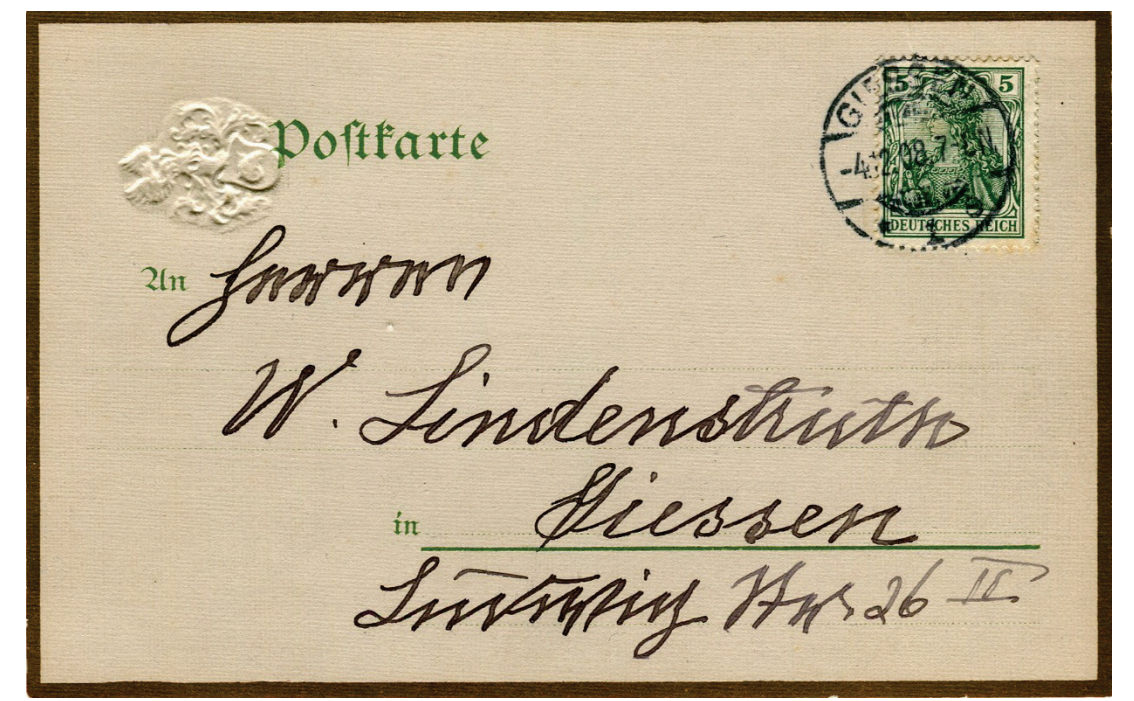 Postkarte
5 5
GIESSEN
-4.12.08.7-8N.
DEUTSCHES REICH
An Herren
W. Lindenstruth
in Giessen
Ludwig Str. 26 II